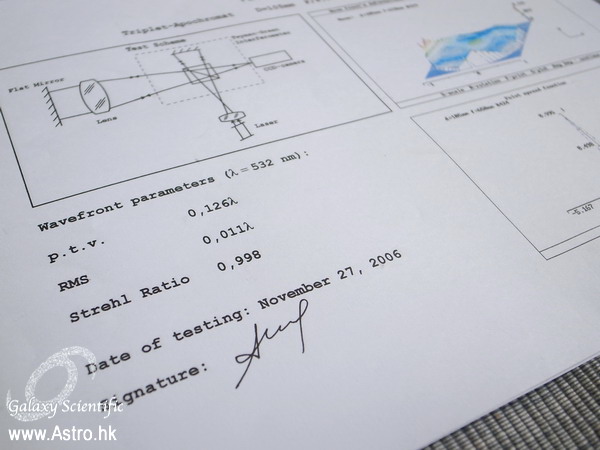 Triplet-Apochromat
Test Scheme
Flat Mirror
Lens
Laser
CCD-camera
Point spread function
Wavefront parameters (λ=532 nm):
p.t.v. 0,126λ
RMS 0,011λ
Strehl Ratio 0,998
Date of testing: November 27, 2006
Signature:
Galaxy Scientific
www.Astro.hk